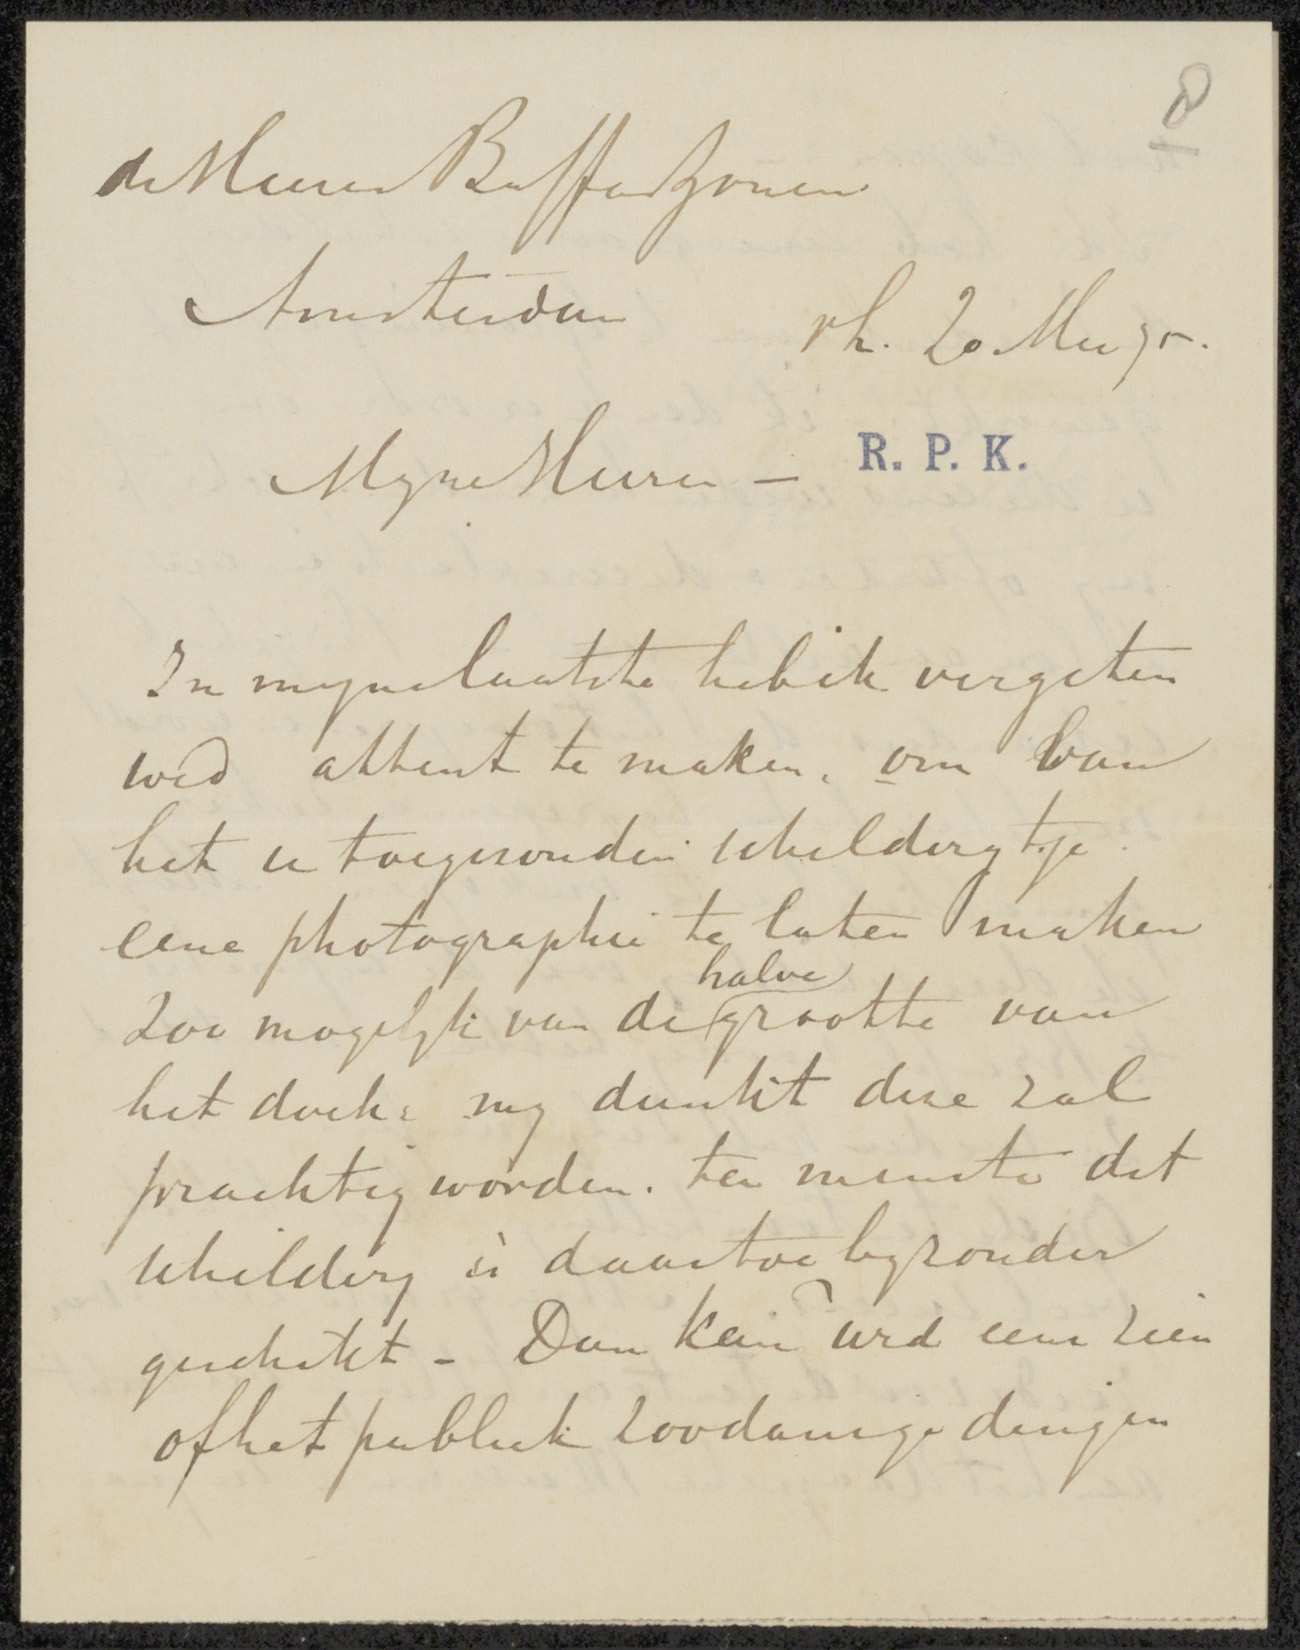 8
de Heeren Buffa & Zonen
Amsterdam
rh. 20 Mei 95.
R. P. K.
Myne Heeren —
In myne laatste heb ik vergeten
uEd attent te maken, om van
het u toegezonden schilderytje
eene photographie te laten maken
zoo mogelyk van de halve grootte van
het doek: my dunkt deze zal
prachtig worden. ten minste dit
schildery is daartoe byzonder
geschikt - Dan kan uEd eens zien
of het publiek zoodanige dingen